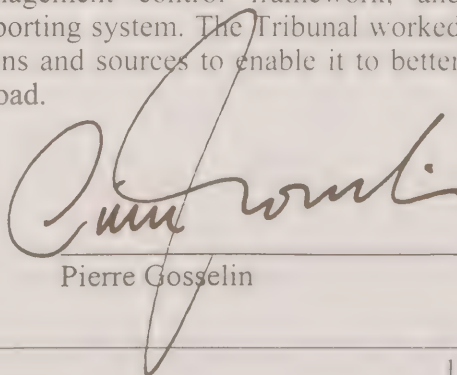 nagement control framework, and
porting system. The Tribunal worked
ns and sources to enable it to better
oad.
Pierre Gosselin
1